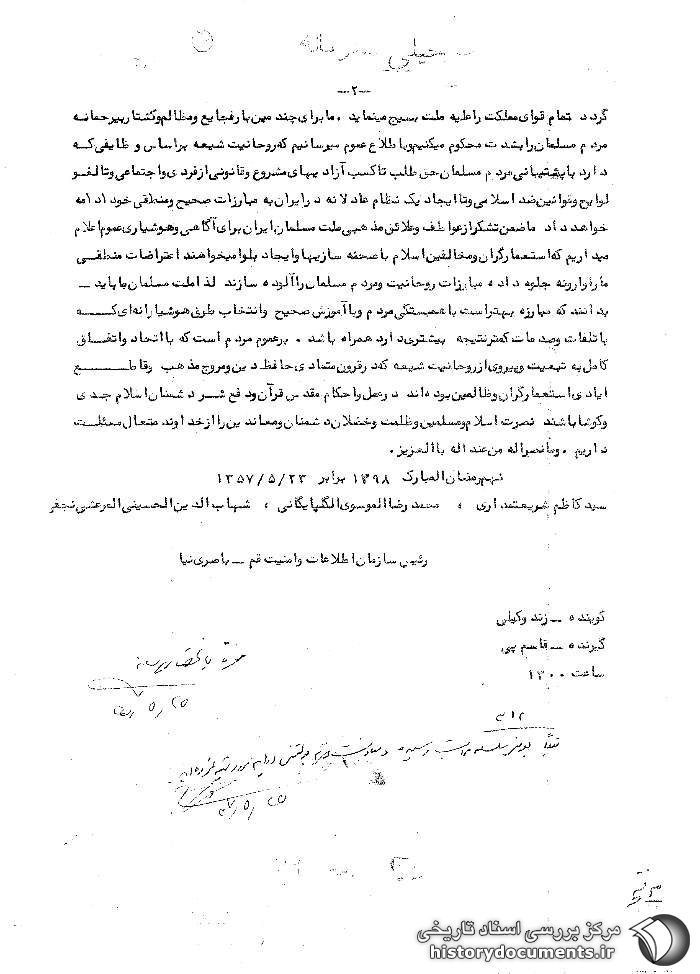 خیلی محرمانه
—۲—
گردد تمام قوای مملکت را علیه ملت بسیج مینماید . ما برای چندمین بار فجایع و مظالم و کشتار بیرحمانه
مردم مسلمان را بشدت محکوم میکنیم و باطلاع عموم میرسانیم که روحانیت شیعه براساس وظایفی که
دارد با پشتیبانی مردم مسلمان حق طلب تا کسب آزادیهای مشروع و قانونی از فردی و اجتماعی و تا لغو
لوایح و قوانین ضد اسلامی و تا ایجاد یک نظام عادلانه در ایران به مبارزات صحیح و منطقی خود ادامه
خواهد داد ما ضمن تشکر از عواطف و علائق مذهبی ملت مسلمان ایران برای آگاهی و هوشیاری عموم اعلام
میداریم که استعمارگران و مخالفین اسلام با صحنه سازیها و ایجاد بلوا میخواهند اعتراضات منطقی
ما را وارونه جلوه داده مبارزات روحانیت و مردم مسلمان را آلوده سازند لذا ملت مسلمان ما باید —
بدانند که مبارزه بهتر است با همبستگی مردم و با آموزش صحیح وانتخاب طرق هوشیارانه‌ای که
با تلفات و صدمات کمتر نتیجه بیشتری دارد همراه باشد . بر عموم مردم است که با اتحاد و اتفاق
کامل به تبعیت و پیروی از روحانیت شیعه که در قرون متمادی حافظ دین و مروج مذهب و قاطع
ایادی استعمارگران و ظالمین بوده‌اند در عمل و احکام مقدس قرآن و دفع شر دشمنان اسلام جدی
و کوشا باشند نصرت اسلام و مسلمین و ظلمت و خذلان دشمنان و معاندین را از خداوند متعال مسئلت
داریم . و ما نصراله من عند اله با العزیز .
نهم رمضان المبارک ۱۳۹۸ برابر ۱۳۵۷/۵/۲۳
سید کاظم شریعتمداری ، محمد رضا الموسوی الگلپایگانی ، شهاب الدین الحسینی المرعشی نجفی
رئیس سازمان اطلاعات و امنیت قم —
گوینده — زند وکیلی
گیرنده — قاسم پی
ساعت ۱۳۰۰
۳۱۲
مرکز بررسی اسناد تاریخی
historydocuments.ir